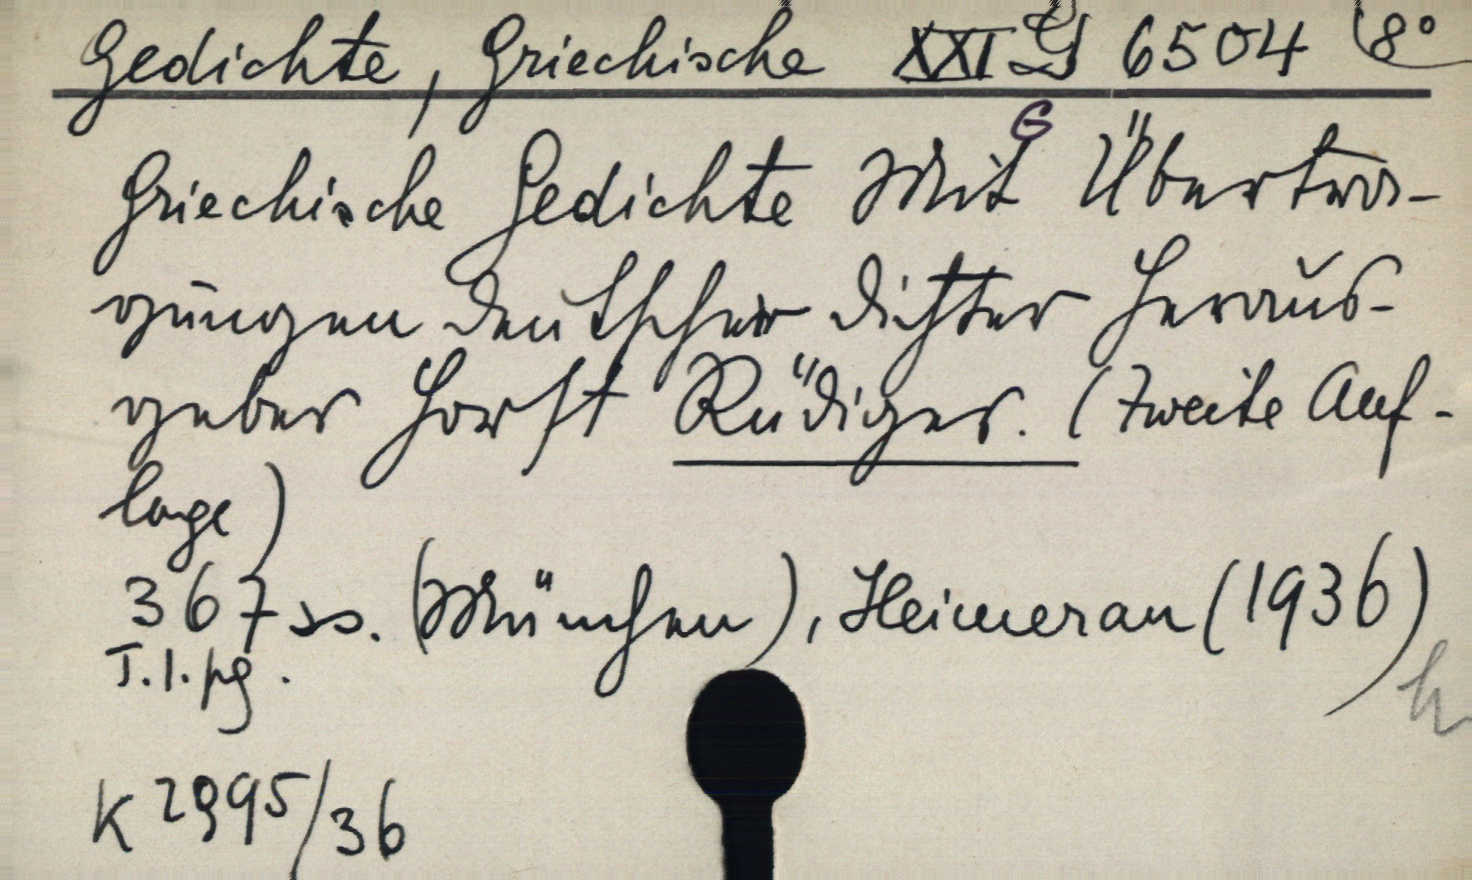 Gedichte, Griechische XXI G 6504 (8°
G
Griechische Gedichte Mit Übertra-
gungen deutscher Dichter Heraus-
geber Horst Rüdiger. (Zweite Auf-
lage)
367 ss. (München), Heimeran (1936)
T.l.pg.
h
K 2995/36